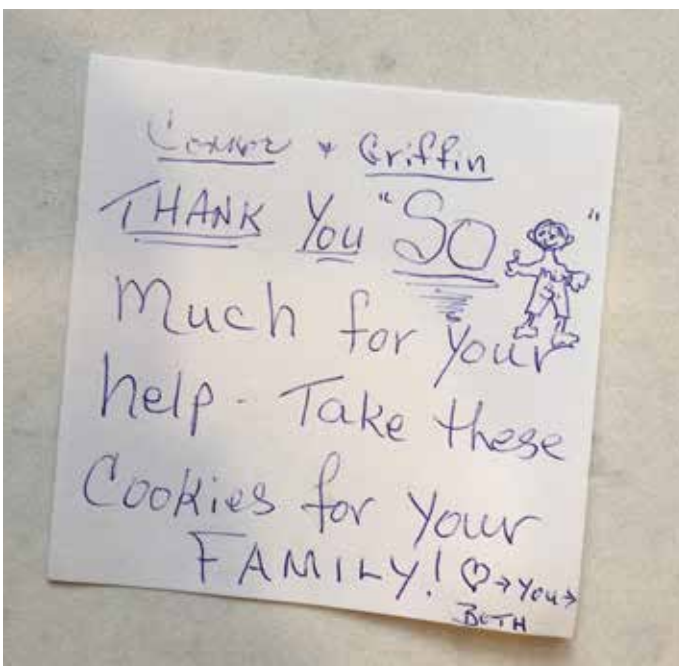 Connor & Griffin
THANK You "SO"
Much for your
help - Take these
Cookies for your
FAMILY! ♡→You→
BETH